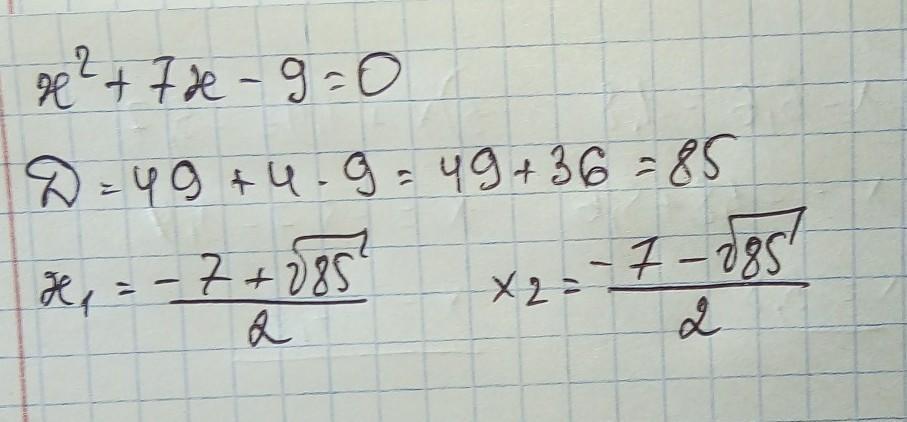 x² + 7x - 9 = 0
D = 49 + 4 · 9 = 49 + 36 = 85
x₁ = (-7 + √85)/2 x₂ = (-7 - √85)/2